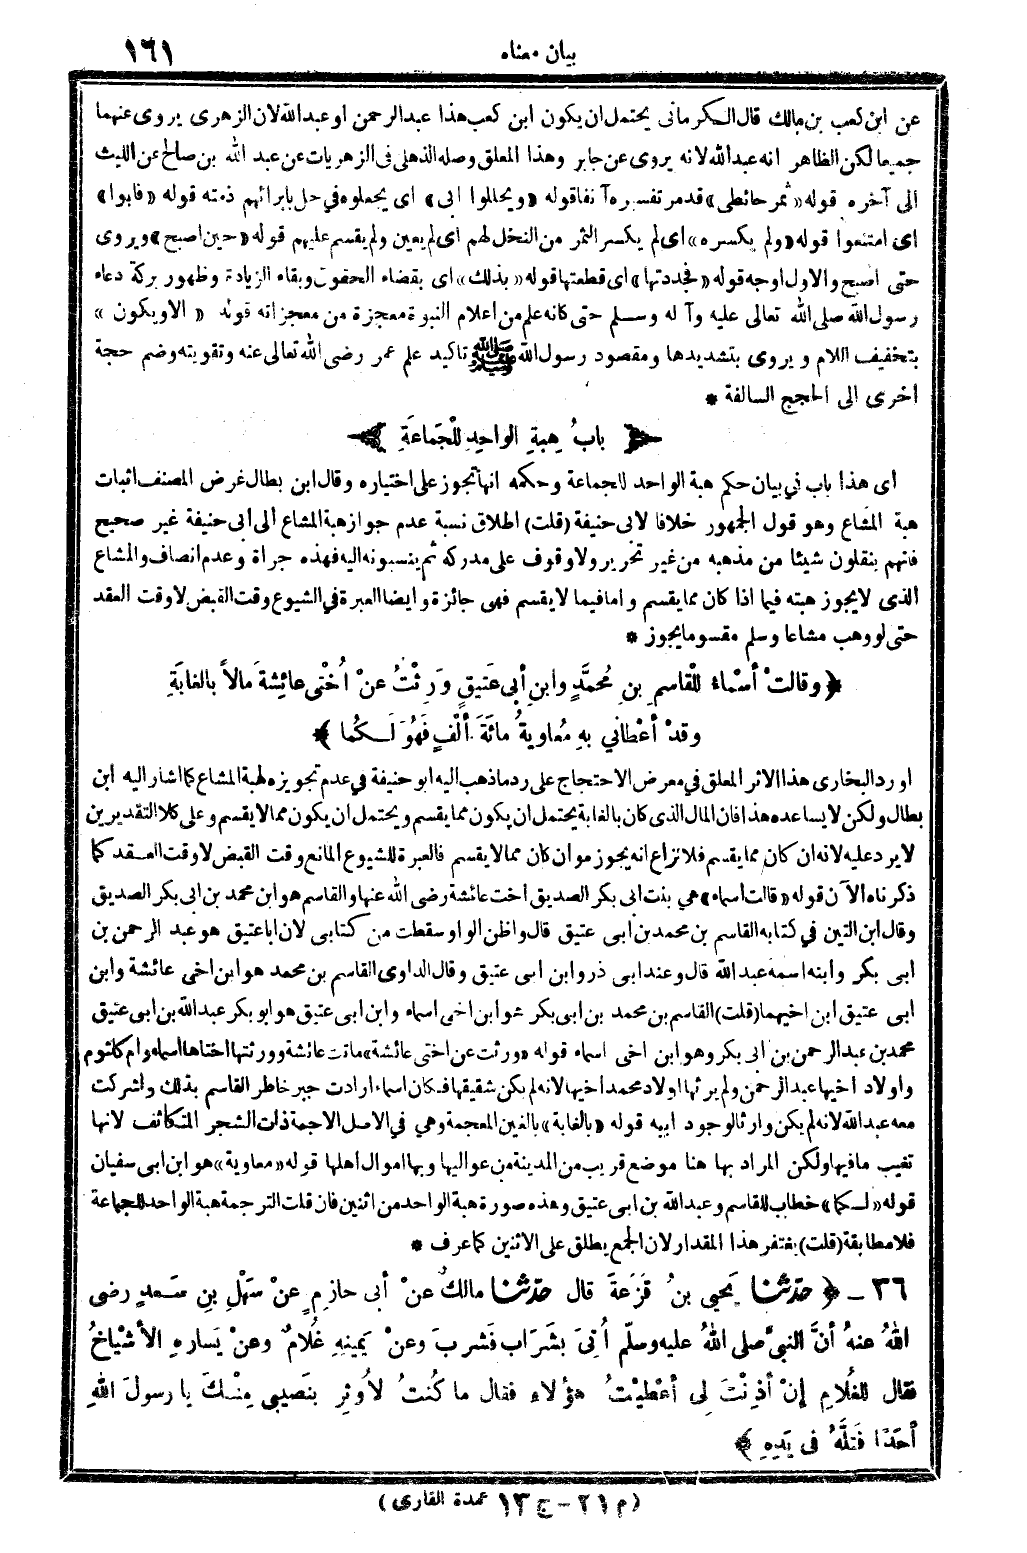 بيان معناه ١٦١
عن ابن كعب بن مالك قال الكرمانى يحتمل ان يكون ابن كعب هذا عبد الرحمن او عبدالله لان الزهرى يروى عنهما
جميعا لكن الظاهر انه عبدالله لانه يروى عن جابر وهذا المعلق وصله الذهلى فى الزهريات عن عبد الله بن صالح عن الليث
الى آخره قوله «ثمر حائطى» قدمر تفسيره آنفا قوله «ويحللوا ابى» اى يجعلوه فى حل بابرائهم ذمته قوله «فابوا»
اى امتنعوا قوله «ولم يكسره» اى لم يكسر الثمر من النخل لهم اى لم يعين ولم يقسم عليهم قوله «حين اصبح» ويروى
حتى اصبح والاول اوجه قوله «فجددتها» اى قطعتها قوله «بذلك» اى بقضاء الحقوق وبقاء الزيادة وظهور بركة دعاء
رسول الله صلى الله تعالى عليه وآله وسلم حتى كانه علم من اعلام النبوة معجزة من معجزاته قوله «الا ويكون»
بتخفيف اللام ويروى بتشديدها ومقصود رسول الله ﷺ تاكيد علم عمر رضى الله تعالى عنه وتقويته وضم حجة
اخرى الى الحجج السالفة *
﴿ بابُ هِبَةِ الواحِدِ للْجَماعَةِ ﴾
اى هذا باب في بيان حكم هبة الواحد للجماعة وحكمه انها تجوز على اختياره وقال ابن بطال غرض المصنف اثبات
هبة المشاع وهو قول الجمهور خلافا لابى حنيفة (قلت) اطلاق نسبة عدم جواز هبة المشاع الى ابى حنيفة غير صحيح
فانهم ينقلون شيئا من مذهبه من غير تحرير ولا وقوف على مدركه ثم ينسبونه اليه فهذه جراة وعدم انصاف والمشاع
الذى لايجوز هبته فيما اذا كان مما يقسم واما فيما لايقسم فهى جائزة وايضا العبرة في الشيوع وقت القبض لاوقت العقد
حتى لووهب مشاعا وسلم مقسوما يجوز *
﴿ وقالتْ أسْماءُ للْقاسمِ بنِ مُحمَّدٍ وابنِ أبي عَتيقٍ ورِثْتُ عنْ اُخْتى عائِشةَ مالاً بالغابَةِ
وقدْ أعْطاني بهِ مُعاويةُ مائَةَ ألْفٍ فَهُوَ لَكُما ﴾ *
اورد البخارى هذا الاثر المعلق في معرض الاحتجاج على رد ما ذهب اليه ابو حنيفة في عدم تجويزه لهبة المشاع كما اشار اليه ابن
بطال ولكن لايساعده هذا فان المال الذى كان بالغابة يحتمل ان يكون مما يقسم ويحتمل ان يكون مما لايقسم وعلى كلا التقديرين
لايرد عليه لانه ان كان مما يقسم فلا نزاع انه يجوز موان كان مما لايقسم فالعبرة للشيوع المانع وقت القبض لاوقت العقد كما
ذكرناه الآن قوله «قالت اسماء» هي بنت ابى بكر الصديق اخت عائشة رضى الله عنها والقاسم هو ابن محمد بن ابى بكر الصديق
وقال ابن التين في كتابه القاسم بن محمد بن أبى عتيق قال واظن الواو سقطت من كتابى لان اباعتيق هو عبد الرحمن بن
ابى بكر وابنه اسمه عبد الله قال وعند ابى ذر وابن ابى عتيق وقال الداوى القاسم بن محمد هو ابن اخى عائشة وابن
ابى عتيق ابن اخيهما (قلت) القاسم بن محمد بن ابى بكر هو ابن اخى اسماء وابن ابى عتيق هو ابو بكر عبدالله بن ابى عتيق
محمد بن عبدالرحمن بن ابى بكر وهو ابن اخى اسماء قوله «ورثت عن اختى عائشة» ماتت عائشة وورثتها اختاها اسماء وام كلثوم
واولاد اخيها عبدالرحمن ولم يرثها اولاد محمد اخيها لانه لم يكن شقيقها فكان اسماء ارادت جبر خاطر القاسم بذلك واشركت
معه عبدالله لانه لم يكن وارثا لوجود ابيه قوله «بالغابة» بالغين المعجمة وهي في الاصل الاجمة ذات الشجر المتكاثف لانها
تغيب ما فيها ولكن المراد بها هنا موضع قريب من المدينة من عواليها وبها اموال اهلها قوله «معاوية» هو ابن ابى سفيان
قوله «لكما» خطاب للقاسم وعبدالله بن ابى عتيق وهذه صورة هبة الواحد من اثنين فان قلت الترجمة هبة الواحد للجماعة
فلا مطابقة (قلت) يغتفر هذا المقدار لان الجمع يطلق على الاثنين كما عرف *
٣٦ - ﴿ حدّثنا يَحيى بنُ قَزَعَةَ قال حدّثنا مالكٌ عنْ أبى حازِمٍ عنْ سَهْلِ بنِ سَعدٍ رضى
اللهُ عنهُ أنَّ النبىَّ صلى اللهُ عليه وسلّم اُتىَ بشَرَابٍ فَشربَ وعنْ يَمينِهِ غُلامٌ وعنْ يَسارِهِ الأشْياخُ
فقال للغُلامِ إنْ أذِنْتَ لِى أعْطَيْتُ هؤلاءِ فقال ما كُنتُ لأوثِرَ بنَصيبى مِنْكَ يا رسولَ اللهِ
أحَدًا فَتلَّهُ فى يَدِهِ ﴾ *
(م ٢١ - ج ١٣ عمدة القارى)